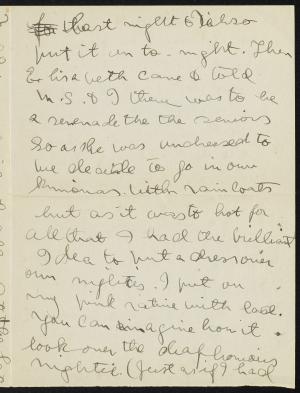 last night & also
put it on to-night. Then
Elisabeth came & told
M.S. & I there was to be
a serenade the the seniors
So as she was undressed to
we decide to go in our
kimonas with raincoats
but as it was to hot for
all that I had the brilliant
Idea to put a dress over
our nighties. I put on
my pink ratine with lace.
You can imagine how it
look over the diaphonous
nightie. (Just as if I had